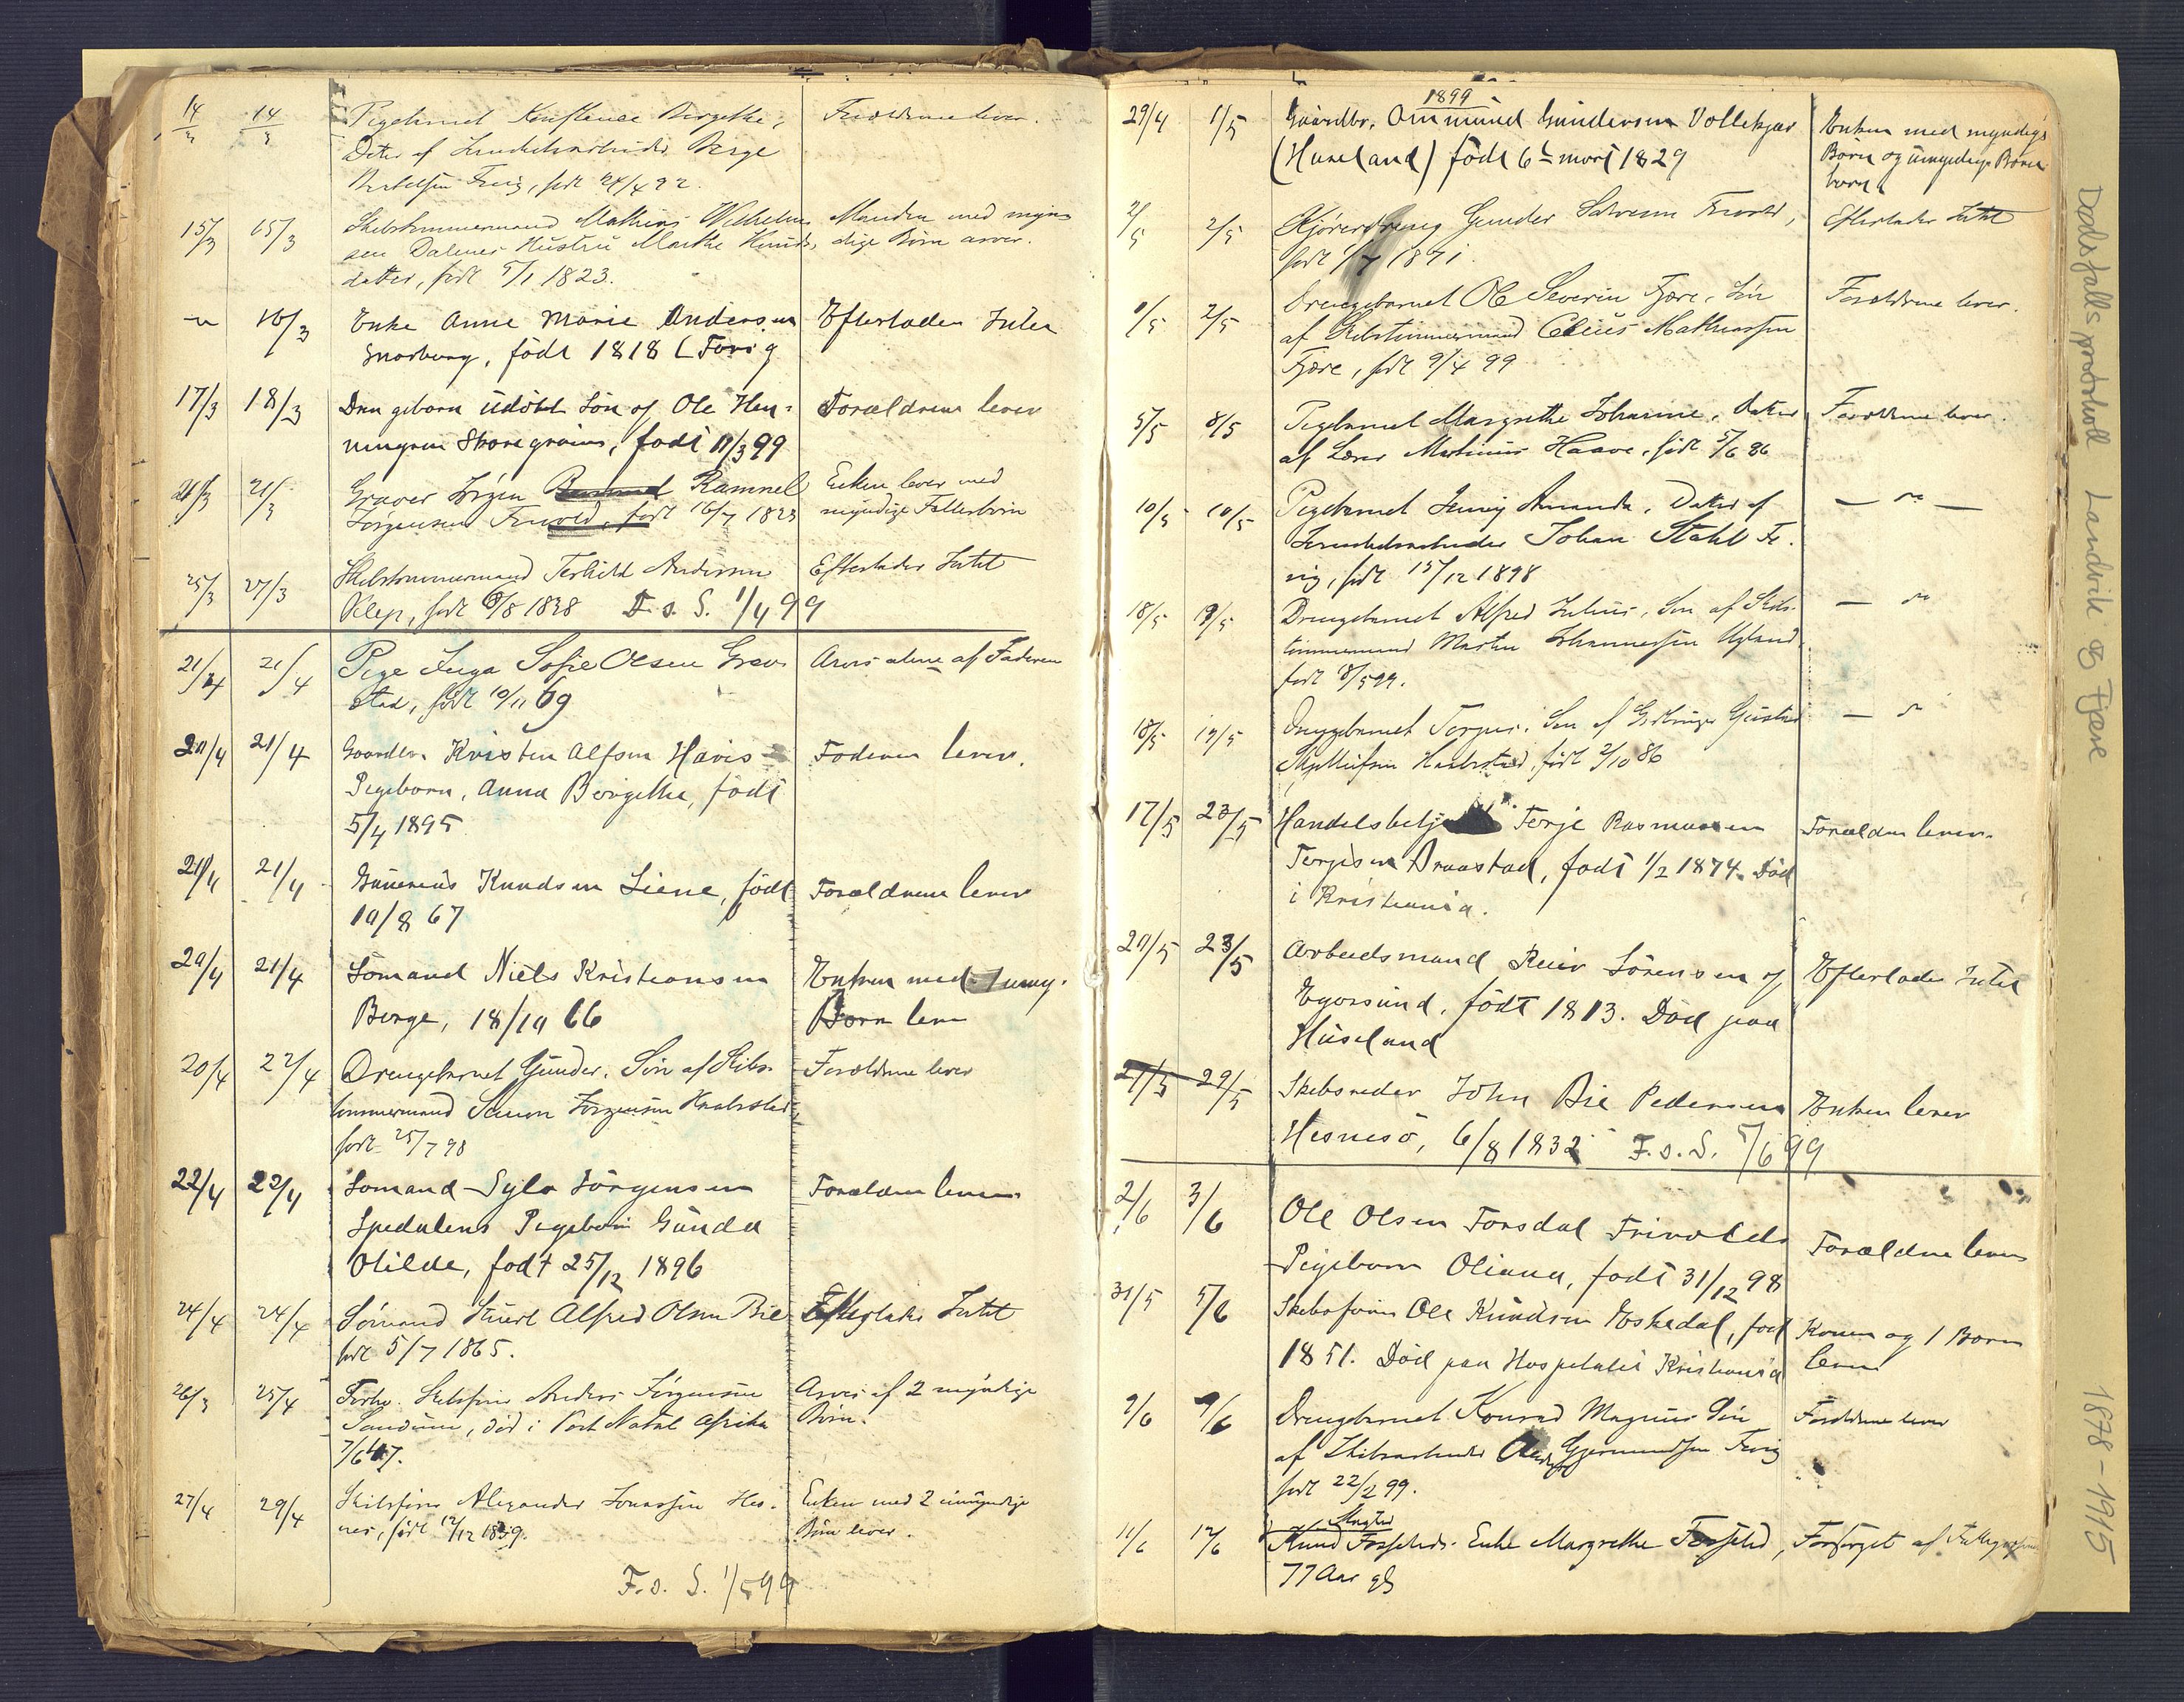 14/3 14/3 Pigebarnet Konstance Birgethe, Forældrene lever.
Dater af Jernskibsarbeider Berge
Bertelsen Fevig, født 24/4 92.
15/3 15/3 Skibstømmermand Mathias Wilhelm- Manden med myn-
sen Dalenes Hustru Marthe Knuds- dige Børn arver.
datter, født 5/1 1823.
-"- 16/3 Enke Anne Marie Andersen Efterlader Intet
Snarberg, født 1818 (Fevig
17/3 18/3 Drengebarn udøbt Søn af Ole Hen- Forældrene lever
ningsen Skaregrøms, født 11/3 99
21/3 21/3 Graver Jørgen Rammel Enken lever med
Jørgensen Frivold, født 16/7 1823 myndige Fællesbørn
25/3 27/3 Skibstømmermand Terkild Andersen Efterlader Intet
Klep, født 8/8 1828 F. o. S. 1/4 99
21/4 21/4 Pige Inga Sofie Olsen Grev- Arves alene af Faderen
stad, født 10/11 69
20/4 21/4 Gaardbr. Kristen Alfsen Haves Faderen lever.
Pigebarn, Anna Bergithe, født
5/4 1895
21/4 21/4 Gunerius Knudsen Liene, født Forældrene lever
10/8 67
20/4 21/4 Sømand Niels Kristiansen Enken med umy.
Berge, 18/10 66 Børn lever
20/4 22/4 Drengebarnet Gunder, Søn af Skibs- Forældrene lever
tømmermand Simon Jørgensen Haabestad,
født 25/7 98
22/4 22/4 Sømand Syl. Jørgensen Forældrene lever
Spedalens Pigebarn Gunda
Otilde, født 25/12 1896
24/4 24/4 Sømand Stuert Alfred Olsen Bie Efterlader Intet
født 5/7 1865.
26/3 25/4 Forhv. Skibsfører Anders Jørgensen Arves af 2 myndige
Sandum, død i Port Natal Afrika Børn.
7/6 47.
27/4 29/4 Skibsfører Alexander Jonassen Hes- Enken med 2 umyndige
nes, født 12/12 1859. Børn lever.
F. o. S. 1/5 99
1899
29/4 1/5 Gaardbr. Ommund Gundersen Vollekjær Enken med myndige
(Huseland) født 6te mars 1829 Børn og umyndige Børne
børn
2/5 2/5 Kjøredreng Gunder Salvesen Frivold, Efterlader Intet
født 1/7 1871.
1/5 2/5 Drengebarnet Ole Severin Fjære, Søn Forældrene lever.
af Skibstømmermand Elius Mathiassen
Fjære, født 9/4 99
5/5 8/5 Pigebarnet Margrethe Johanne, Dater Forældrene lever.
af Lærer Martinius Haave, født 5/6 86
10/5 10/5 Pigebarnet Jenny Amanda, Dater af — " —
Jernskibsarbeider Johan Stahl Fe-
vig, født 15/12 1898
18/5 19/5 Drengebarnet Alfred Julius, Søn af Skibs- — "
tømmermand Martin Johannessen Ugland,
født 18/5 99.
18/5 19/5 Drengebarnet Torgus, Søn af Gaardbruger Gustav — "
Skjelleifsen Haabestad, født 2/10 86
17/5 23/5 Handelsbetje Terje Rasmussen Forældre lever.
Terjesen Draastad, født 1/2 1874. Død
i Kristiania.
20/5 23/5 Arbeidsmand Reier Sørensen af Efterlader Intet
Egersund, født 1813. Død paa
Huseland
27/5 29/5 Skibsreder John Bie Pedersen Enken lever
Hesnesø, 6/8 1832 F. o. S. 5/6 99
2/6 3/6 Ole Olsen Forsdal Frivolds
Pigebarn Oliana, født 31/12 98 Forældrene lever
31/5 5/6 Skibsfører Ole Knudsen Eskedal, født Konen og 1 Barn
1851. Død paa Hospitalet Kristiania lever
2/6 9/6 Drengebarnet Konrad Magnus Søn Forældrene lever
af Skibsarbeider Gjermundsen Fevig
født 22/2 99.
11/6 12/6 Knud Fosseli. Enke Margrethe , Forsørget af Fattigvæsenet
77 Aar gl.
Dødsfallsprotokoll Landvik og Fjære 1878-1915